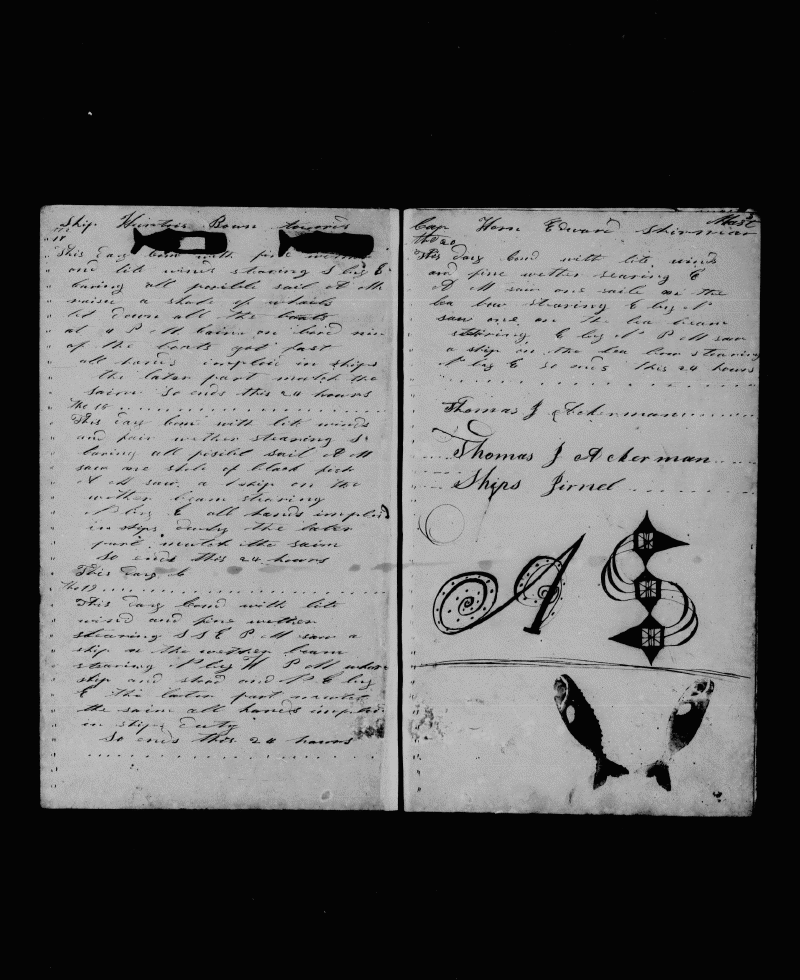 Ship Huntris Boun towards
17
This day coms with fine wether
and lite winds stearing S by E
having all posible sail A M
raise a shole of whails
let down all the boats
at 4 P M laing on bord nie
of the boats got fast
all hands imploid in ships
the later part much the
saim So ends this 24 hours
the 18
This day coms with lite winds
and fair wether stearing S
having all posible sail A M
saw one shole of black fish
A M saw a ship on the
wether beam stearing
N by E all hands imploid
in ships duty the later
part much the saim
So ends this 24 hours
This day b
the 19
This day coms with lite
wind and fine wether
stearing S S E P M saw a
ship on the wether beam
stearing N by W P M
ship and stood and N E by
E the later part much
the saim all hands imploid
in ships duty
So ends this 24 hours
Cap Horn Edward Shirman Mast
the 20
This day coms with lite winds
and fine wether stearing E
A M saw one saile on the
lea bow stearing E by N
saw one on the lea beam
stearing E by N P M saw
a ship on the lea bow stearing
N by E So ends this 24 hours
Thomas J Ackerman
Thomas J Ackerman
Ships Jirnel
A S